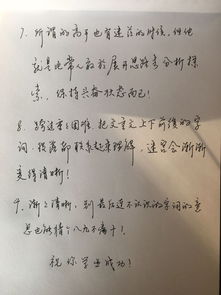 7. 所谓的高手也有迷茫的时候，但他
就是比常人敢于展开思路去分析探
索，保持兴奋状态而已！
8. 跨过重重困难，把文章文上下前後的字
词、段落都联系起来理解，迷雾会渐渐
变得清晰！
9. 渐之清晰，到最后连不认识的字词的意
思也能猜个八九不离十！
祝你学业成功！